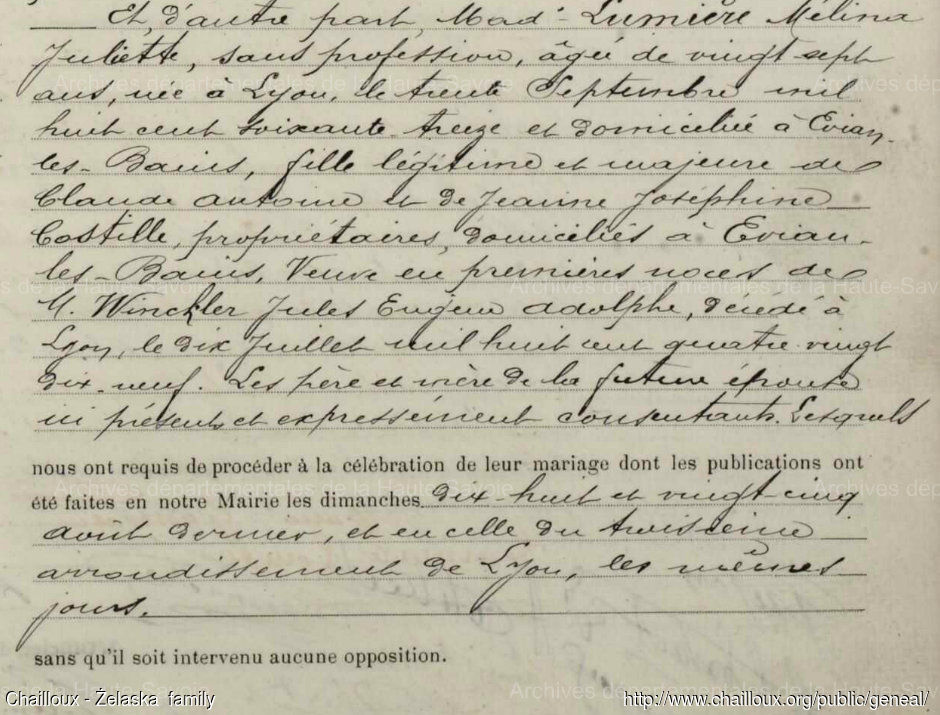 Et d'autre part, Made Lumière Mélina
Juliette, sans profession, âgée de vingt sept
ans, née à Lyon, le trente Septembre mil
huit cent soixante treize et domiciliée à Evian-
les-Bains, fille légitime et majeure de
Claude Antoine et de Jeanne Joséphine
Costille, propriétaires, domiciliés à Evian-
les-Bains, Veuve en premières noces de
M. Winckler Jules Eugène Adolphe, décédé à
Lyon, le dix Juillet mil huit cent quatre vingt
dix-neuf. Les père et mère de la future épouse
ici présents et expressément consentants. Lesquels
nous ont requis de procéder à la célébration de leur mariage dont les publications ont
été faites en notre Mairie les dimanches dix-huit et vingt-cinq
août dernier, et en celle du troisième
arrondissement de Lyon, les mêmes
jours.
sans qu'il soit intervenu aucune opposition.
Archives départementales de la Haute-Savoie
Chailloux - Żelaska family
http://www.chailloux.org/public/geneal/